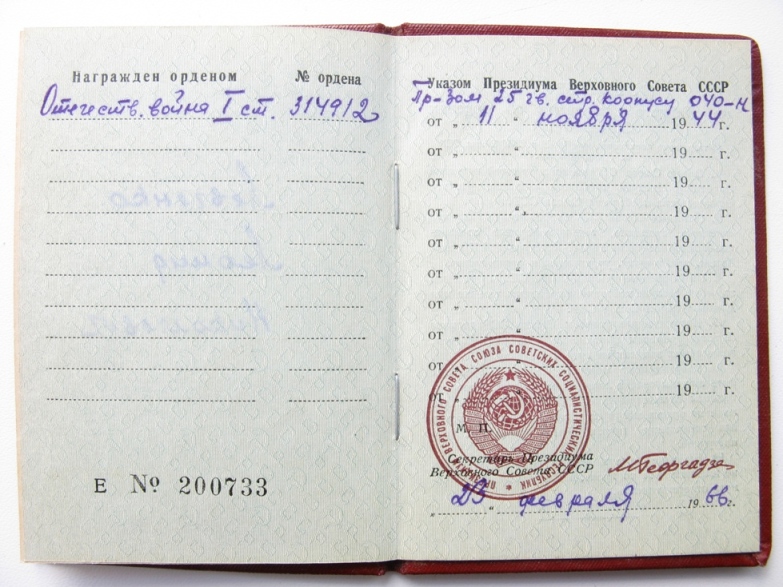 Награжден орденом № ордена
Отечеств. война I ст. 314912
Е № 200733
Указом Президиума Верховного Совета СССР
Пр-зом 25 гв. стр. корпусу 040-н
от „ 11 “ ноября 1944 г.
от „ “ 19 г.
от „ “ 19 г.
от „ “ 19 г.
от „ “ 19 г.
от „ “ 19 г.
от „ “ 19 г.
от „ “ 19 г.
от „ “ 19 г.
от „ “ 19 г.
ПРЕЗИДИУМ ВЕРХОВНОГО СОВЕТА СОЮЗА СОВЕТСКИХ СОЦИАЛИСТИЧЕСКИХ РЕСПУБЛИК
М. П.
Секретарь Президиума
Верховного Совета СССР
МГеоргадзе
„ 23 “ февраля 1966 г.